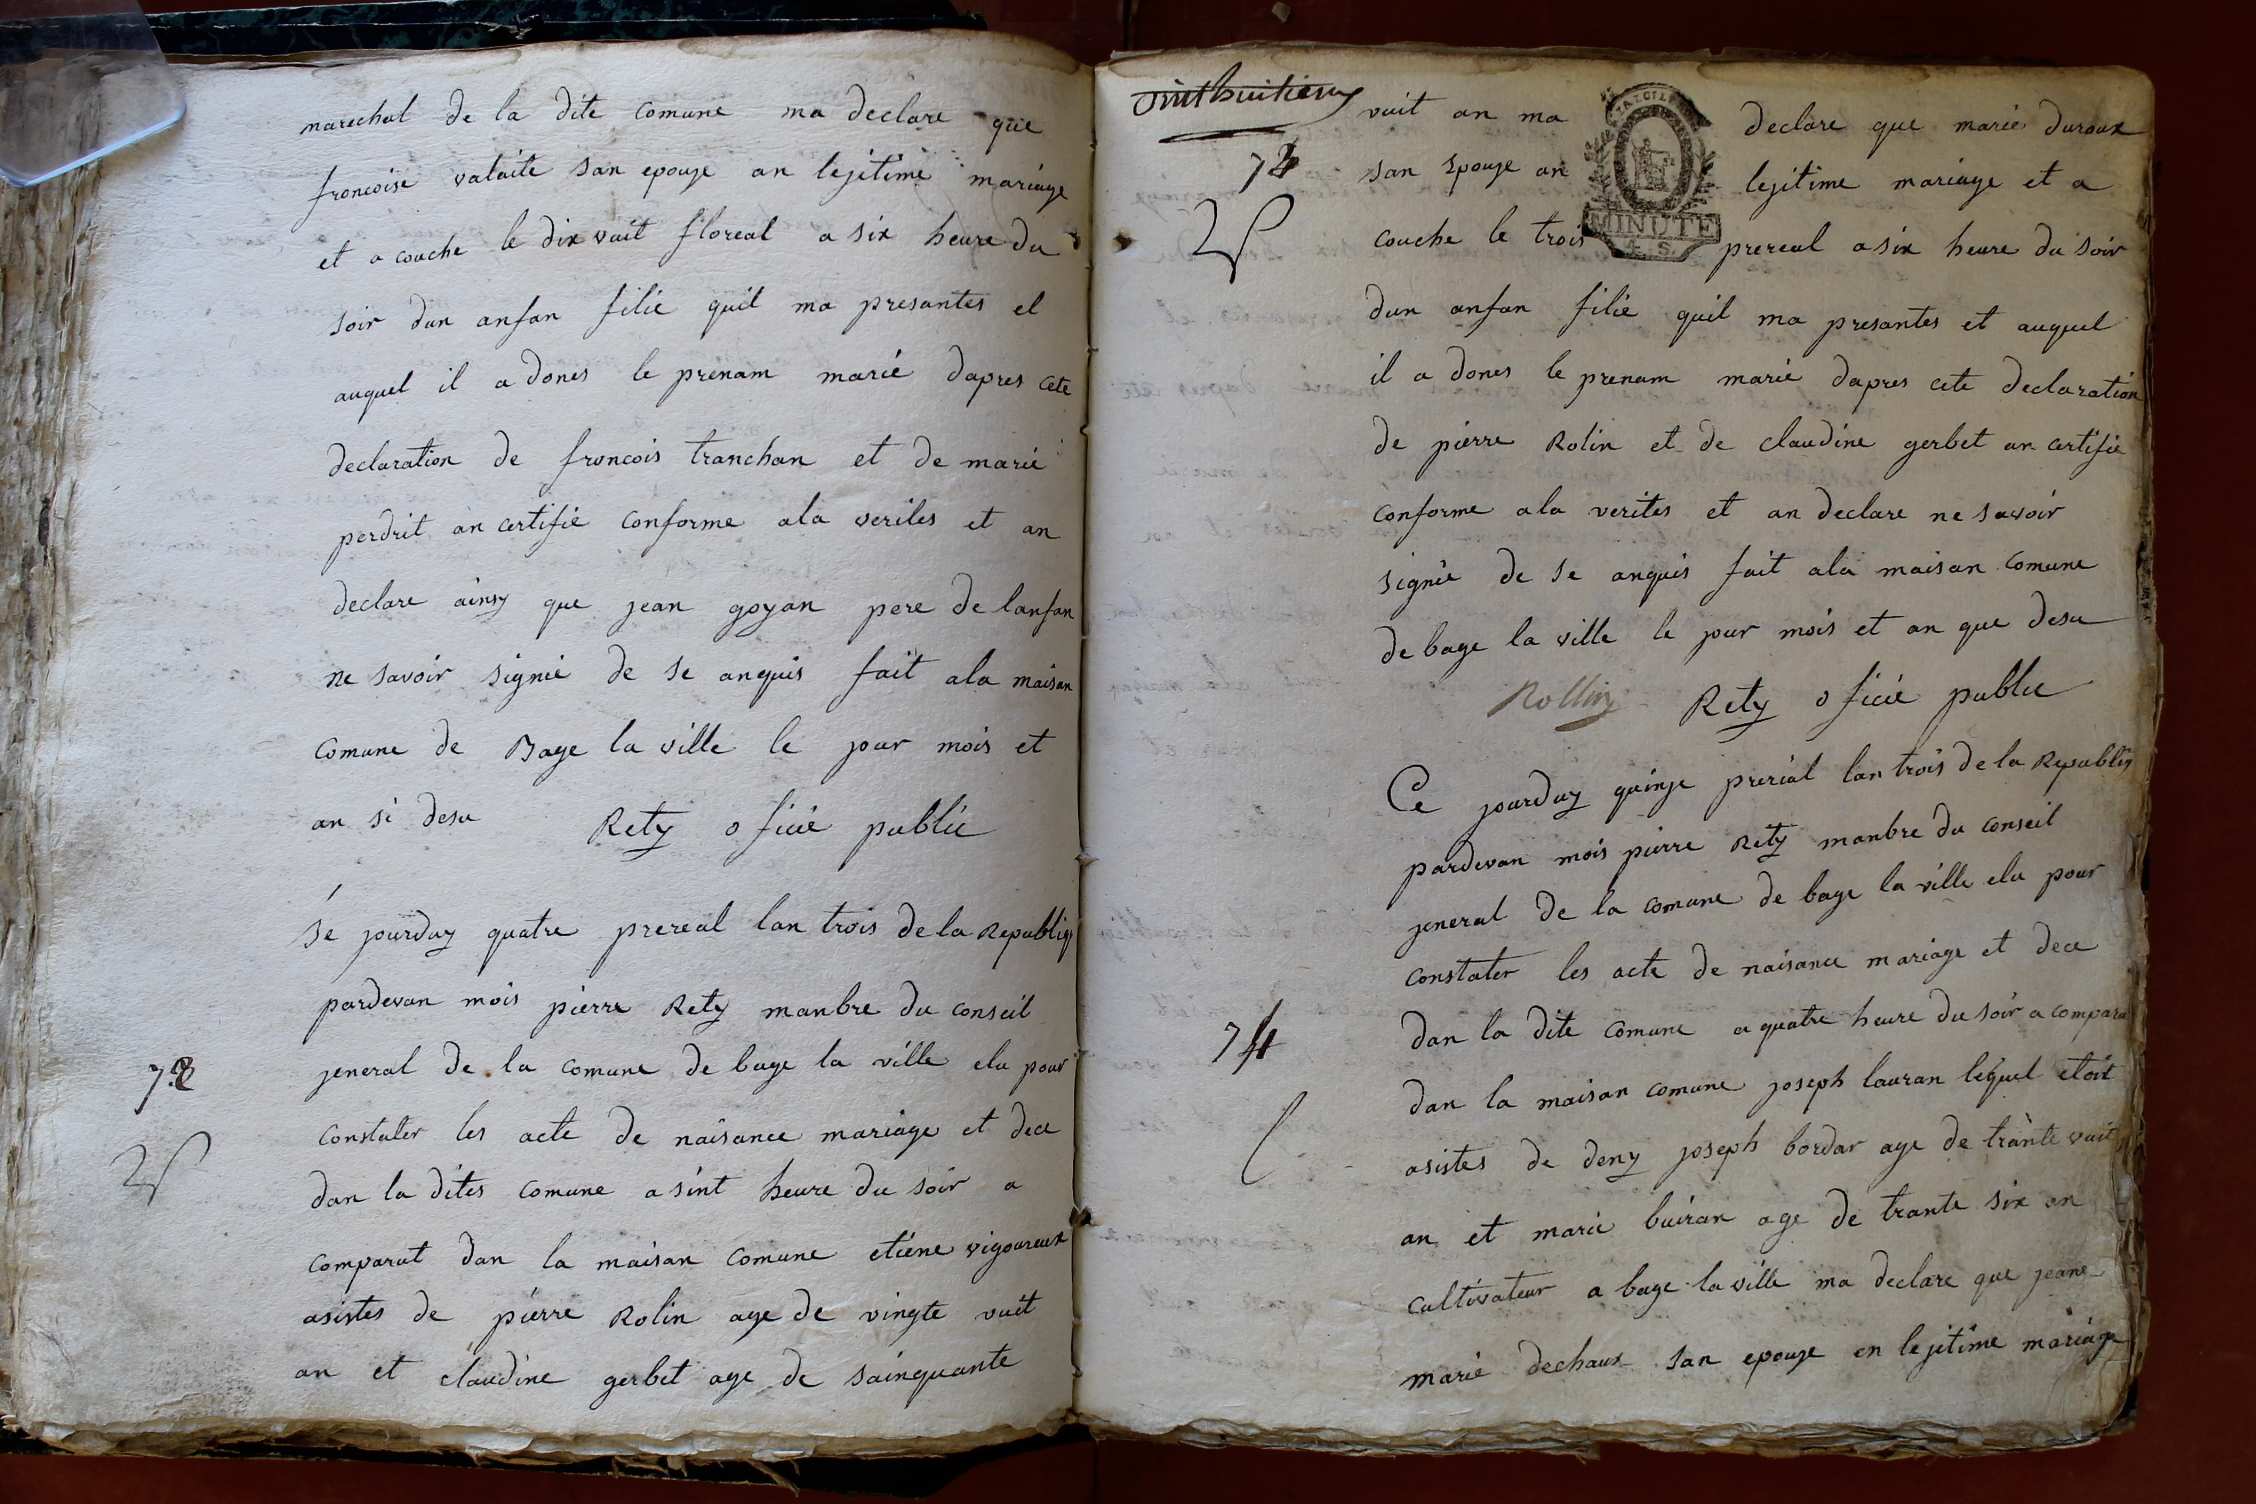 marechal de la dite comune ma declare que
froncoise valaite san epouze an lejitime mariage
et a couche le dix vuit floreal a six heure du
soir dun anfan filie quil ma presantes et
auquel il a dones le prenam marie dapres cete
declaration de froncois tranchan et de marie
perdrit an certifie conforme ala verites et an
declare ainsy que jean goyan pere de lanfan
ne savoir signie de se anquis fait ala maisan
comune de Bage la ville le jour mois et
an si desu Rety oficie public
se jourduy quatre prereal lan trois de la Republiq
pardevan mois pierre Rety manbre du conseil
78
jeneral de la comune de bage la ville elu pour
constater les acte de naisance mariage et dece
dan la dites comune a sint heure du soir a
comparut dan la maisan comune etiene vigoureux
asistes de pierre Rolin age de vingte vuit
an et claudine gerbet age de sainquante
vint huitieme
vuit an ma declare que marie duroux
73
san epouze an lejitime mariage et a
MINUTE
4. S.
couche le trois prereal a six heure du soir
dun anfan filie quil ma presantes et auquel
il a dones le prenam marie dapres cete declaration
de pierre Rolin et de claudine gerbet an certifie
conforme ala verites et an declare ne savoir
signie de se anquis fait ala maisan comune
de bage la ville le jour mois et an que desu
Rollin Rety oficie public
Ce jourduy quinze prerial lan trois de la Republiq
pardevan mois pierre Rety manbre du conseil
jeneral de la comune de bage la ville elu pour
constater les acte de naisance mariage et dece
74
dan la dite comune a quatre heure du soir a comparu
dan la maisan comune joseph lauran lequel etoit
asistes de deny joseph bordar age de trante vuit
an et marie buiran age de trante six an
cultivateur a bage la ville ma declare que jeane
marie dechaux san epouze en lejitime mariage